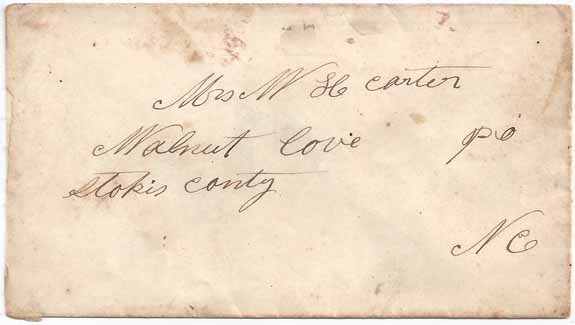 Mrs W H carter
Walnut Cove po
Stokis conty
N C